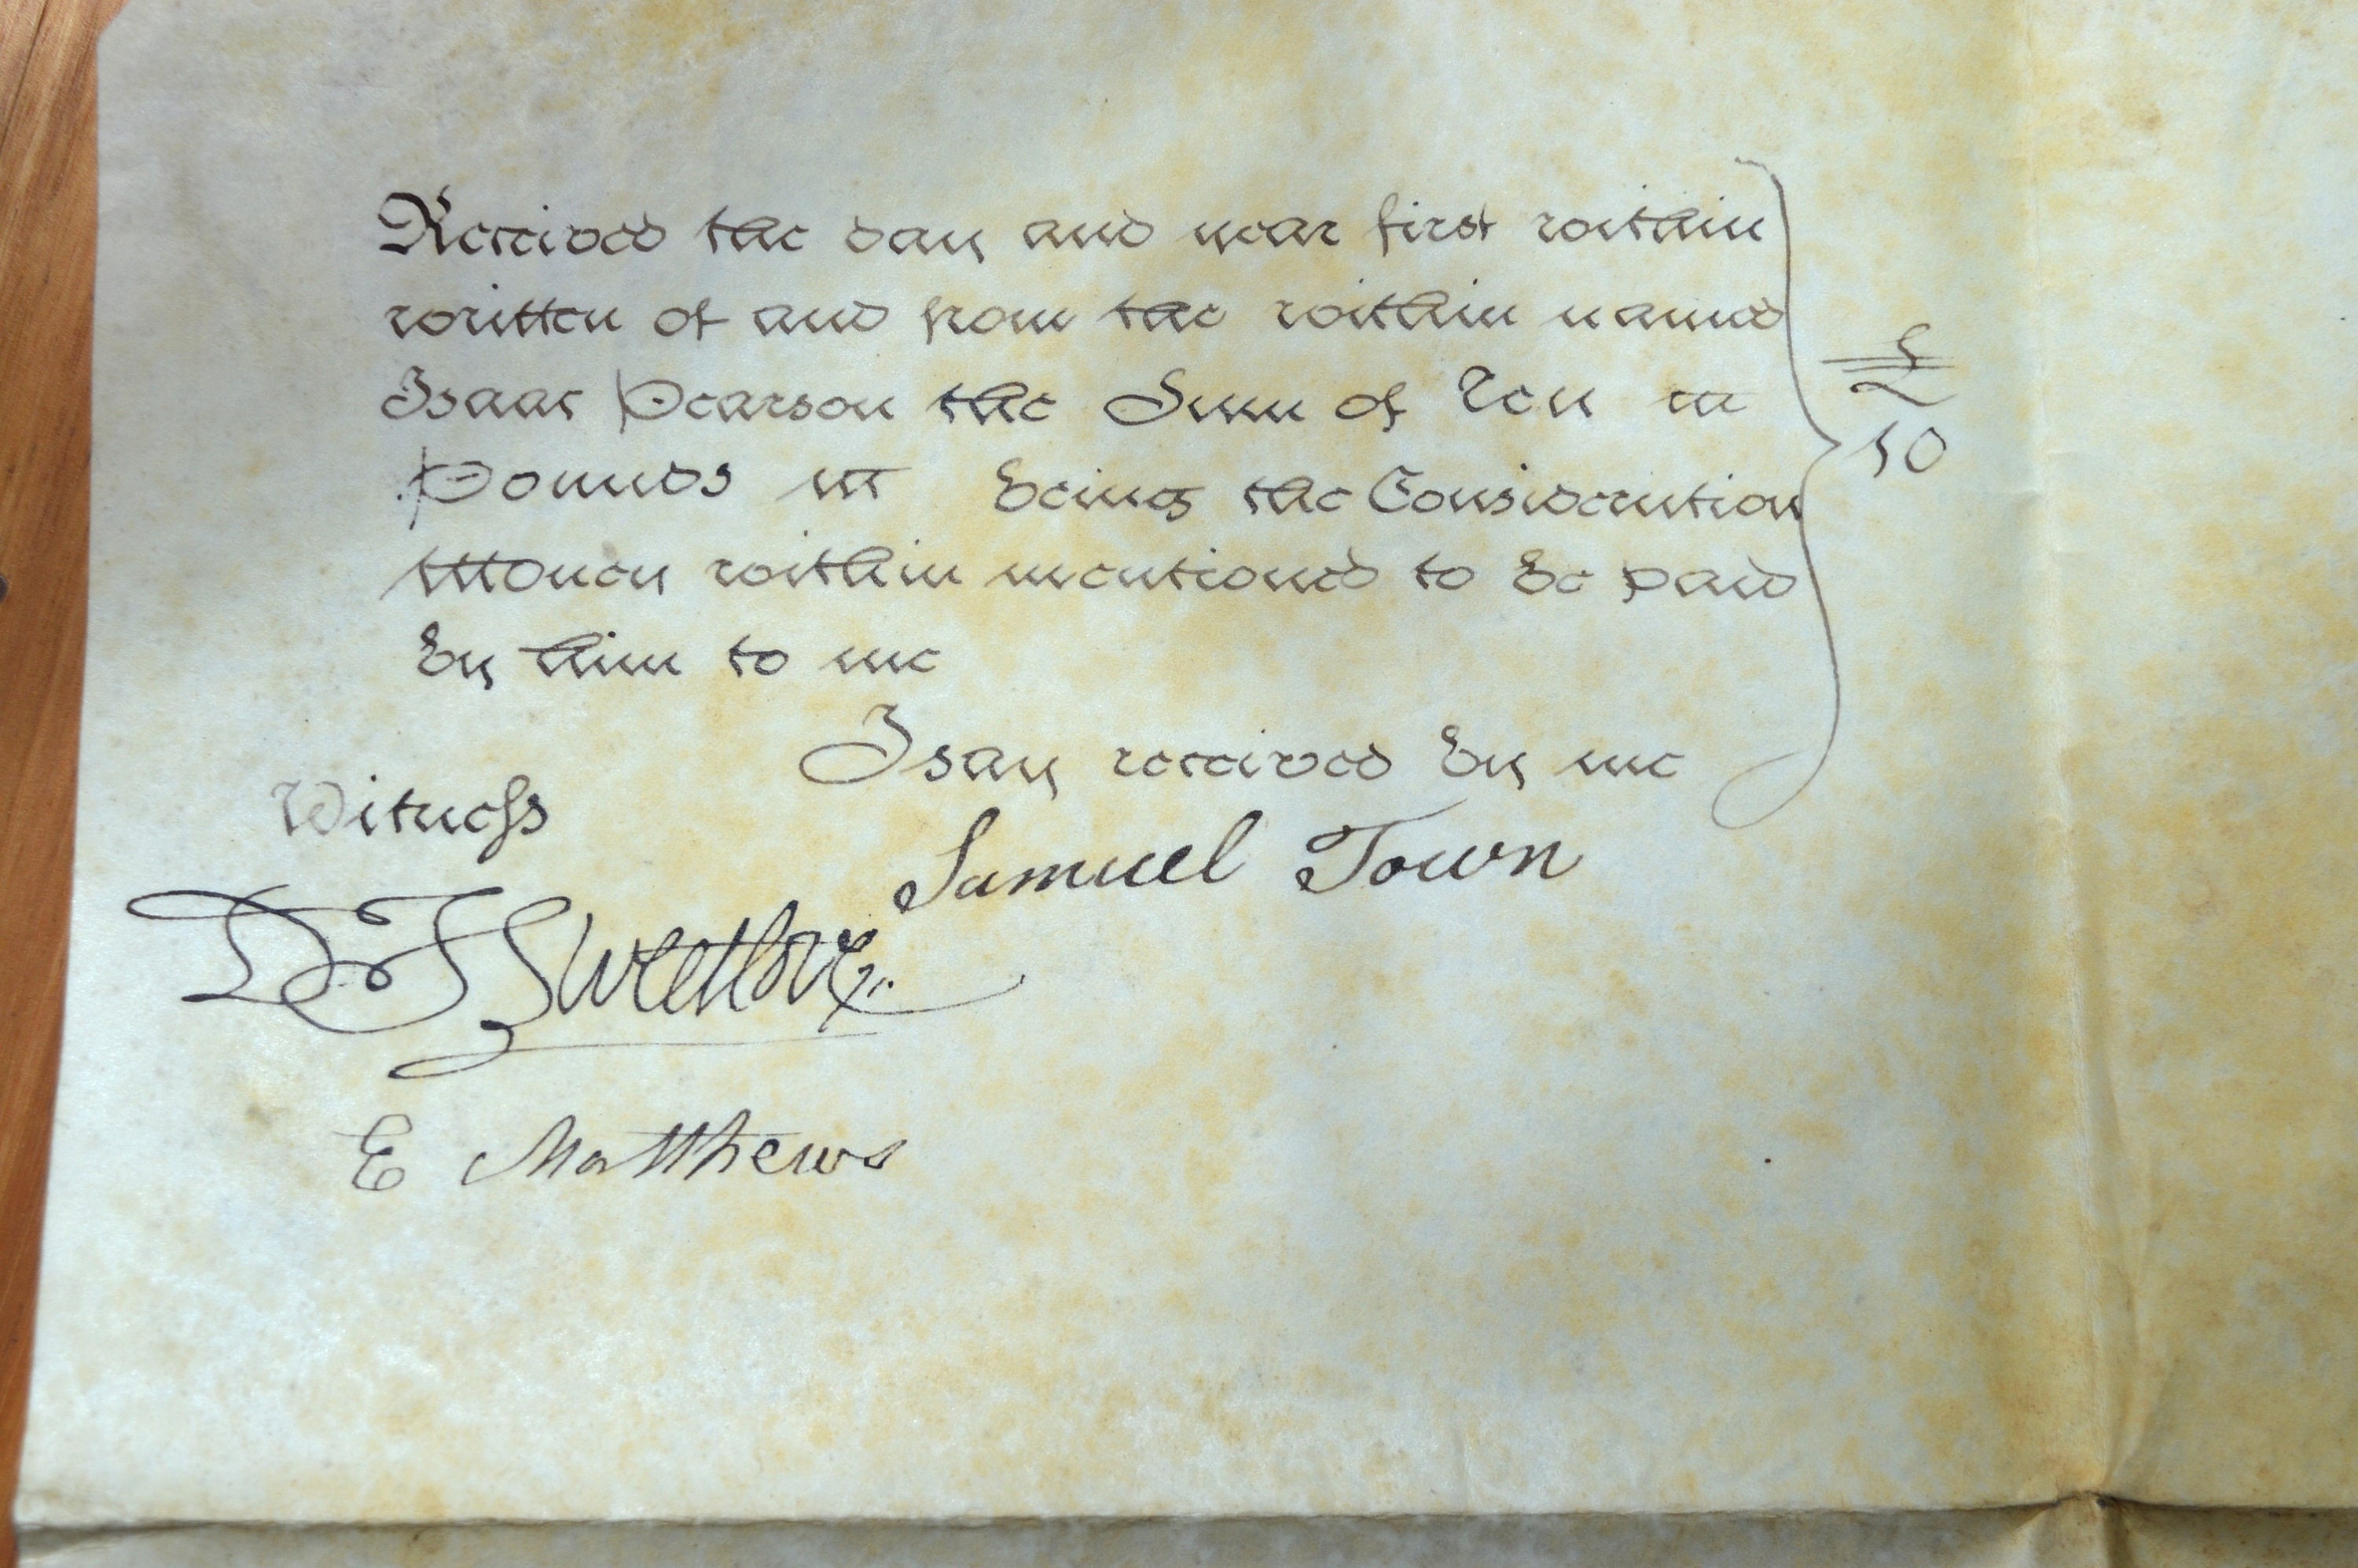 Received the day and year first within
written of and from the within named
Isaac Pearson the Sum of Ten
Pounds being the Consideration
Money within mentioned to be paid
by him to me
£
10
I say received by me
Witness
Samuel Town
D F Sweetlove
E Matthews